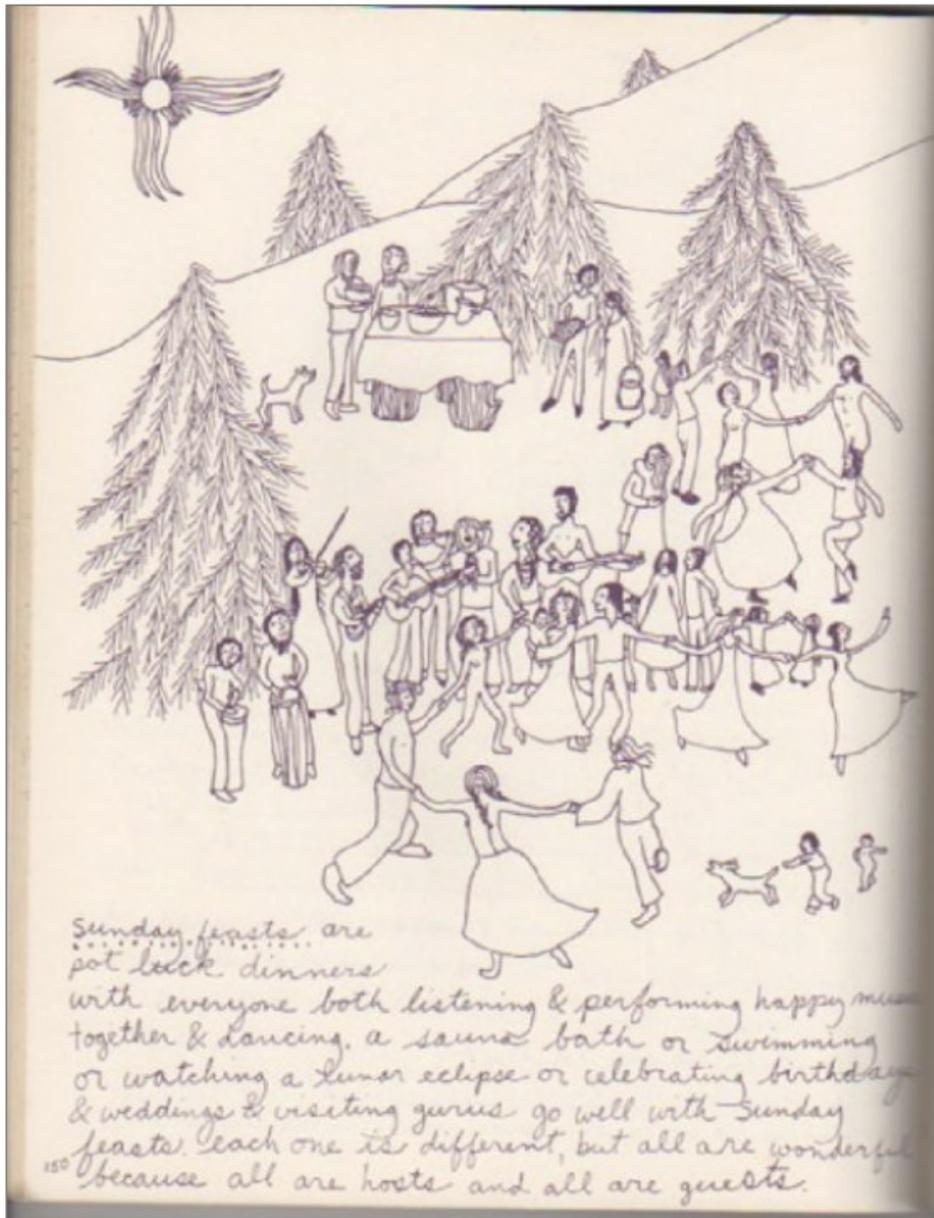 Sunday feasts are
pot luck dinners
with everyone both listening & performing happy mus
together & dancing. a sauna bath or swimming
or watching a lunar eclipse or celebrating birthdays
& weddings & visiting gurus go well with Sunday
feasts. each one is different, but all are wonderful
150 because all are hosts and all are guests.